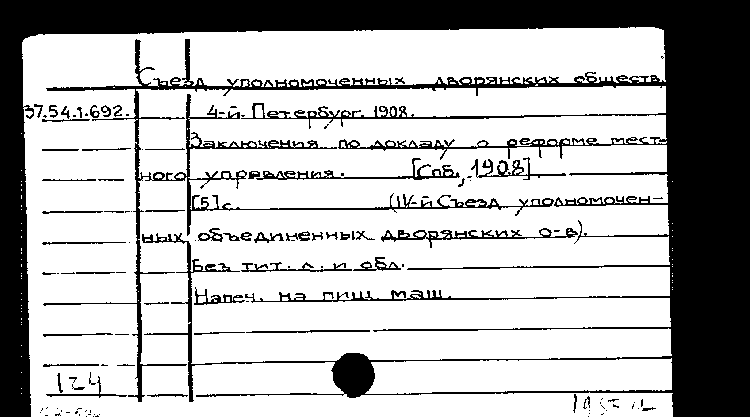 Съезд уполномоченных дворянских обществ.
37.54.1.692. 4-й. Петербург. 1908.
Заключения по докладу о реформе мест-
ного управления. [Спб., 1908].
[5] с. (IV-й Съезд уполномочен-
ных объединенных дворянских о-в).
Без тит. л. и обл.
Напеч. на пиш. маш.
124